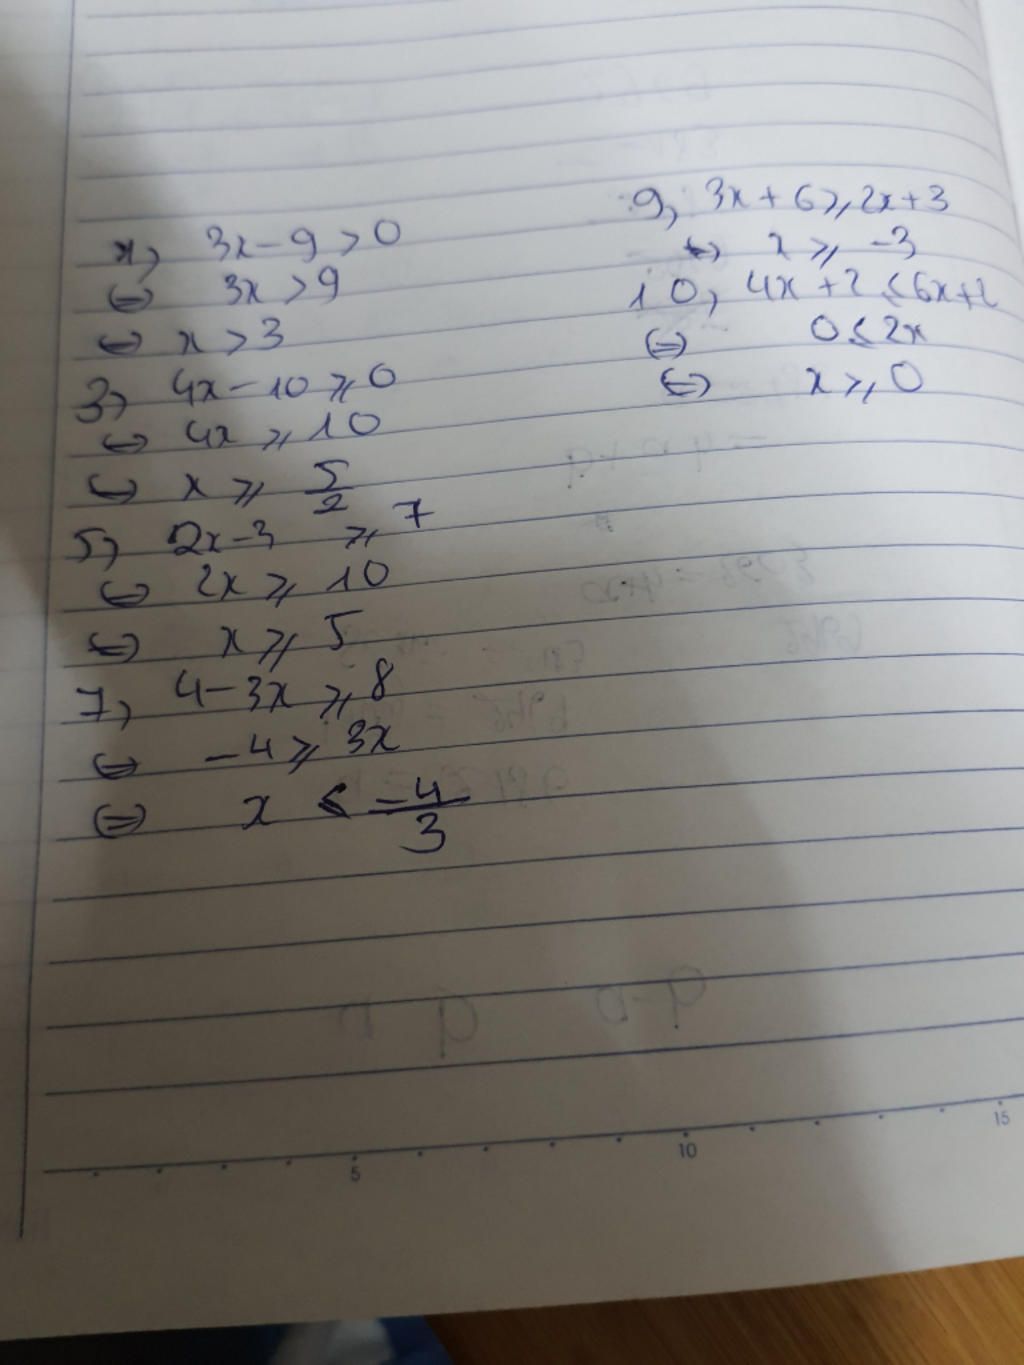 1, 3x - 9 > 0
⇔ 3x > 9
⇔ x > 3
3, 4x - 10 ⩾ 0
⇔ 4x ⩾ 10
⇔ x ⩾ 5/2
5, 2x - 3 ⩾ 7
⇔ 2x ⩾ 10
⇔ x ⩾ 5
7, 4 - 3x ⩾ 8
⇔ -4 ⩾ 3x
⇔ x ⩽ -4/3
9, 3x + 6 ⩾ 2x + 3
⇔ x ⩾ -3
10, 4x + 2 ⩽ 6x + 2
⇔ 0 ⩽ 2x
⇔ x ⩾ 0
5 10 15